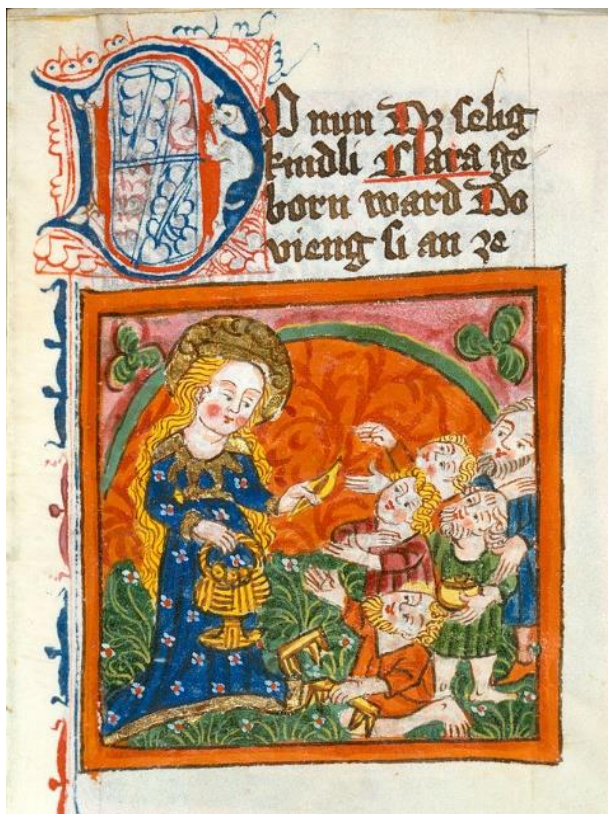 DO nun Dz selig
kindli Clara ge
born ward Do
vieng si an ze